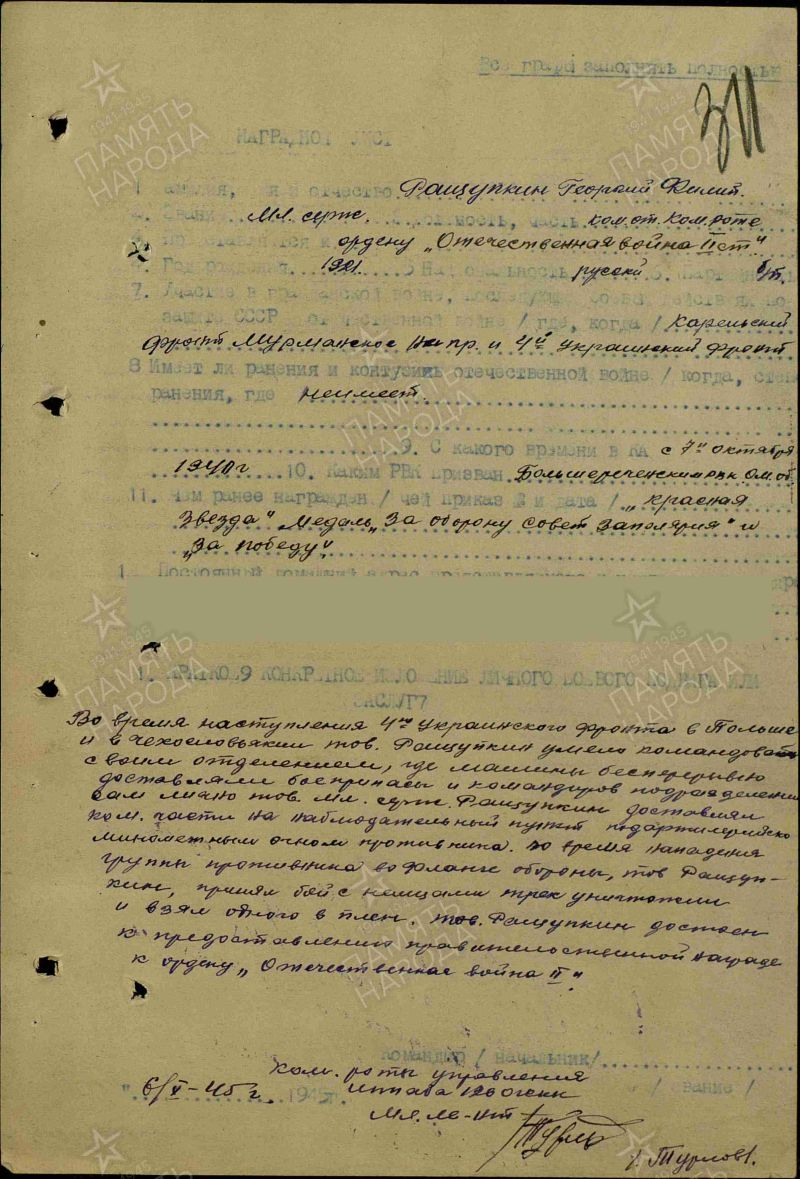 Все графы заполнять полностью
311
НАГРАДНОЙ ЛИСТ
1. Фамилия, имя и отчество Ращупкин Георгий Филип.
2. Звание Мл. серж. 3. должность, часть ком. от. ком. роте
4. Представляется к ордену „Отечественная война II ст."
5. Год рождения 1921 Национальность русский партийн б/п.
7. Участие в гражданской войне, последующих боевых действиях по
защите СССР отечественной войне / где, когда / Карельский
фронт Мурманское напр. и 4й украинский фронт
8 Имеет ли ранения и контузии в отечественной войне / когда,
ранения, где неимеет.
9. С какого времени в КА с 7го октября
1940г 10. Каким РВК призван Большереченским рвк Ом. об.
11. Чем ранее награжден / чей приказ № и дата / „Красная
Звезда" Медаль „За оборону совет Заполярия" и
„За победу".
1 Постоянный домашний адрес
1. КРАТКОЕ9 КОНКРЕТНОЕ ИЗЛОЖЕНИЕ ЛИЧНОГО БОЕВОГО ПОДВИГА ИЛИ
ЗАСЛУГ7
Во время наступления 4го украинского фронта в Польше
и в чехословьякии тов. Ращупкин умело командовал
своим отделением, где машины бесперерывно
доставляли боеприпасы и командиров подразделений
сам лично тов. мл. серж. Ращупкин доставлял
ком. части на наблюдательный пункт подартилерийско
минометным огнем противника. во время нападения
группы противника во фланге обороны, тов Ращуп-
кин, принял бой с немцами трех уничтожил
и взял одного в плен. тов. Ращупкин достоен
к предоставлению правителственной награде
к ордену „Отечественная война II".
командир / начальник/
ком. роты управления
6/X-45 г. 1945г. штаба / звание /
Мл. ле-нт
/Турлов/.
ПАМЯТЬ НАРОДА
1941-1945